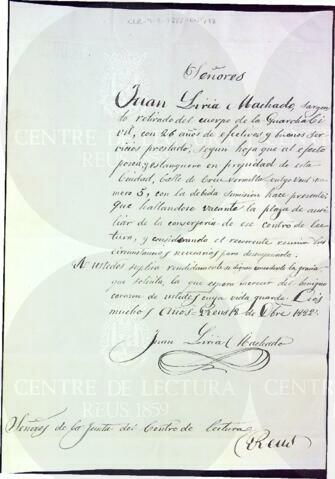 Señores
Juan Liria Machado, sargen-
do retirado del cuerpo de la Guardia Ci-
vil, con 26 años de efectivos y buenos ser-
vicios prestado, segun hoja que al efecto
posea, y estanquero en propiedad de esta
Ciudad, Calle de
mero 5, con la debida sumision hace presente:
Que hallandose vacante la plaza de auxi-
liar de la conserjeria de ese centro de lec-
tura, y considerando el recurrente reunir las
circunstancias necesarias para desempeñarla.
A ustedes suplica rendidamente se dignen concederle la gracia
que solicita, la que espera merecer del benigno
corazon de ustedes cuya vida guarde Dios
muchos años. Reus 12 de Obre 1882.
Juan Liria Machado
Señores de la Junta del Centro de lectura
Reus
CENTRE DE LECTURA
REUS 1859